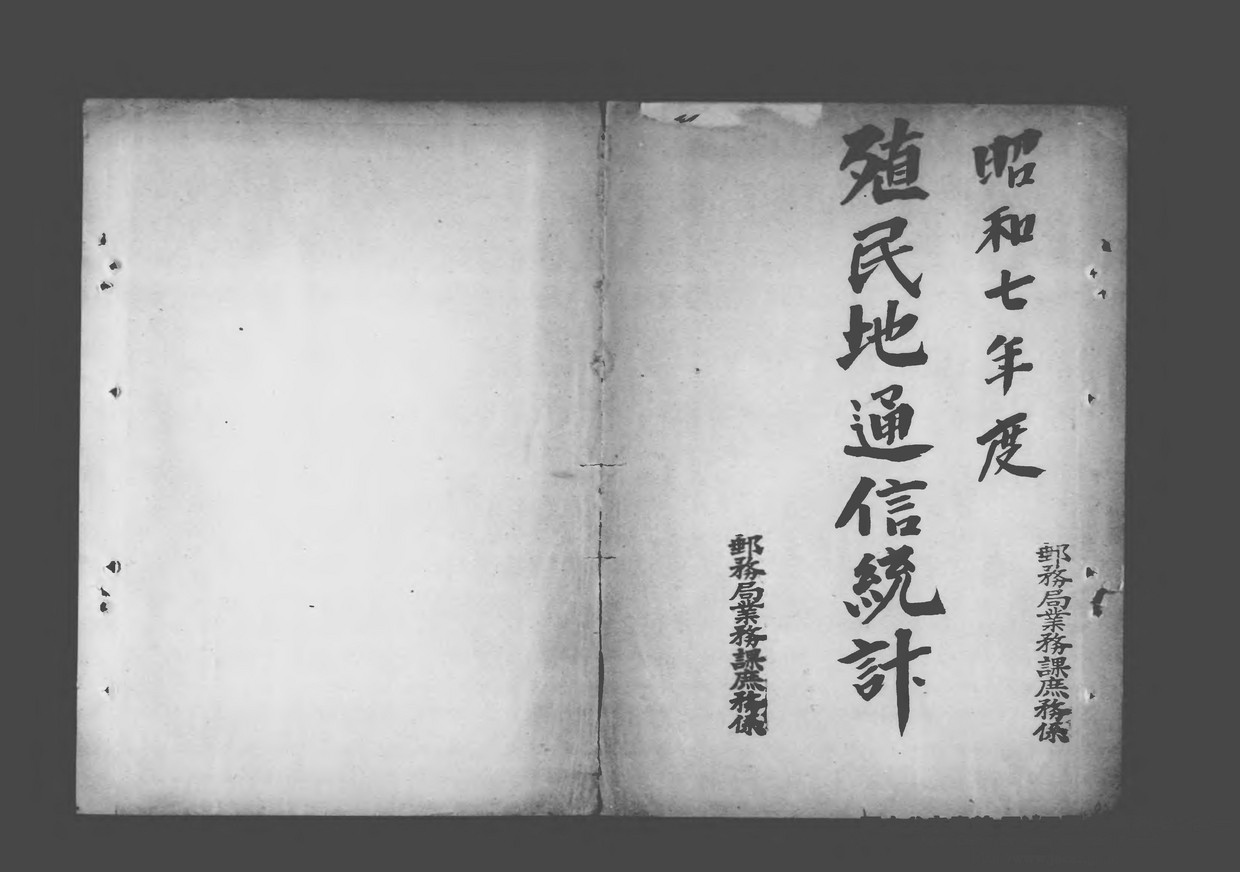 昭和七年度
殖民地通信統計
郵務局業務課庶務係
郵務局業務課庶務係